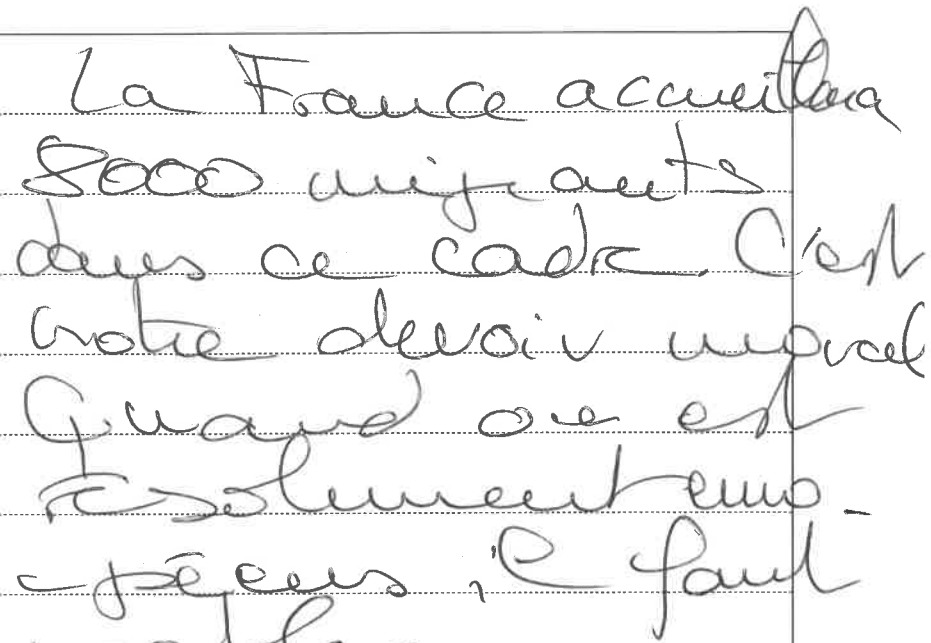 La France accueillera
8000 migrants
dans ce cadre. C'est
notre devoir moral
Quand on est
résolument euro-
-péens, il faut